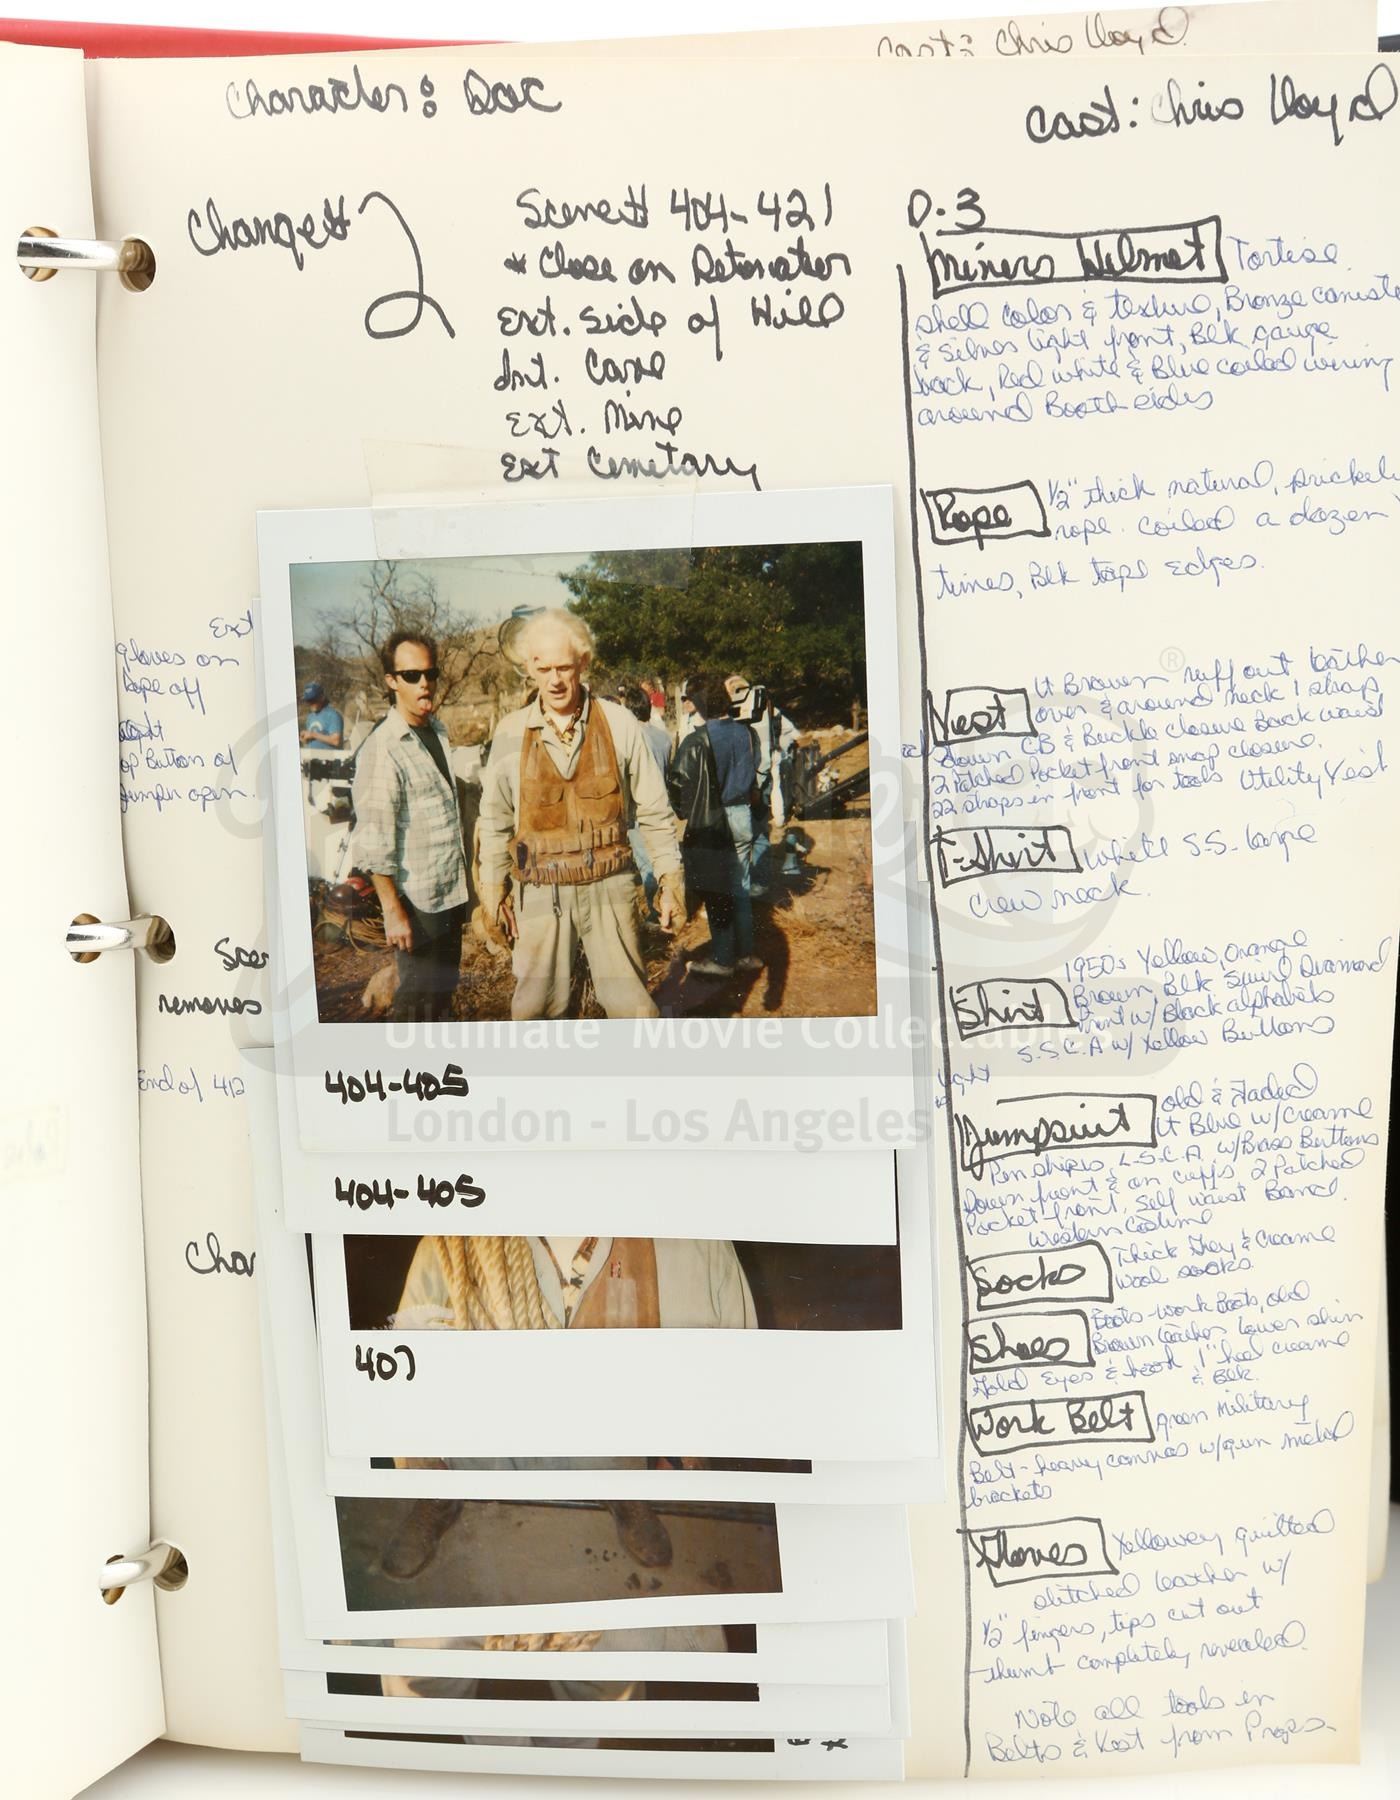 Cast: Chris Lloyd
Character: Doc
Cast: Chris Lloyd
Change# 2
Scene# 404-421
* Close on Detonator
Ext. Side of Hill
Int. Cave
Ext. Mine
Ext Cemetary
D.3
Miners Helmet Tortise
shell color & texture, Bronze caniste
& silver light front, Blk gauge
back, Red white & Blue coiled wiring
around Booth sides
Rope 1/2" thick natural, prickely
rope. coiled a dozen
times, Blk tape edges.
Vest Lt Brown ruff out leather
over & around neck 1 strap
down CB & Buckle closure Back waist
2 Patched Pocket front snap closure.
22 straps in front for tools Utility Vest
T-Shirt White S.S. large
crew neck.
Shirt 1950s Yellow, Orange
Brown, Blk Squrd Diamond
Print w/ Black alphabets
S.S.C.A w/ Yellow Buttons
Jumpsuit old & faded
Lt Blue w/ Creame
Pen stripes, L.S.C.A. w/Brass Buttons
Down front & on cuffs 2 Patched
Pocket front, Self waist Band.
Western Costume
Socks Thick Grey & Creame
Wool socks
Shoes Boots-Work Boots, old
Brown leather lower shin
Gold Eyes & hook 1" heel creame
& Blk.
Work Belt green military
Belt-heavy canvas w/gun metal
brackets
Gloves Yellowey quilted
stitched leather w/
1/2" fingers, tips cut out
thumb completely revealed.
Note all tools in
Belts & Vest from Props-
Ext
gloves on
Rope off
op Button of
Jumper open.
Scen
removes
End of 412
Char
light
404-405
404-405
407
Ultimate Movie Collectables
London - Los Angeles
®